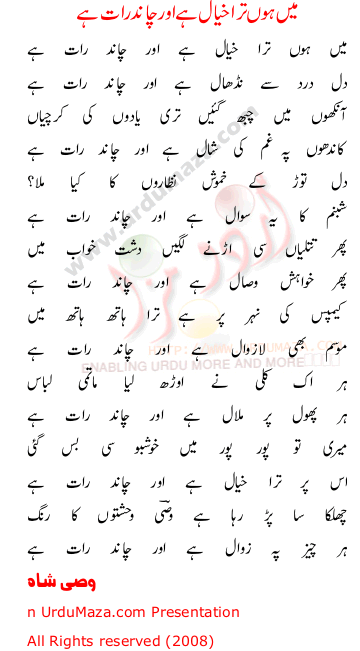 میں ہوں ترا خیال ہے اور چاند رات ہے
میں ہوں ترا خیال ہے اور چاند رات ہے
دل درد سے نڈھال ہے اور چاند رات ہے
آنکھوں میں چبھ گئیں تری یادوں کی کرچیاں
کاندھوں پہ غم کی شال ہے اور چاند رات ہے
دل توڑ کے خموش نظاروں کا کیا ملا؟
شبنم کا یہ سوال ہے اور چاند رات ہے
پھر تتلیاں سی اڑنے لگیں دشت خواب میں
پھر خواہش وصال ہے اور چاند رات ہے
کیمپس کی نہر پر ہے ترا ہاتھ ہاتھ میں
موسم بھی لازوال ہے اور چاند رات ہے
ہر اک کلی نے اوڑھ لیا ماتمی لباس
ہر پھول پر ملال ہے اور چاند رات ہے
میری تو پور پور میں خوشبو سی بس گئی
اس پر ترا خیال ہے اور چاند رات ہے
چھلکا سا پڑ رہا ہے وصیؔ وحشتوں کا رنگ
ہر چیز پہ زوال ہے اور چاند رات ہے
وصی شاہ
n UrduMaza.com Presentation
All Rights reserved (2008)
www.UrduMaza.com
اردو مزا
ENABLING URDU MORE AND MORE